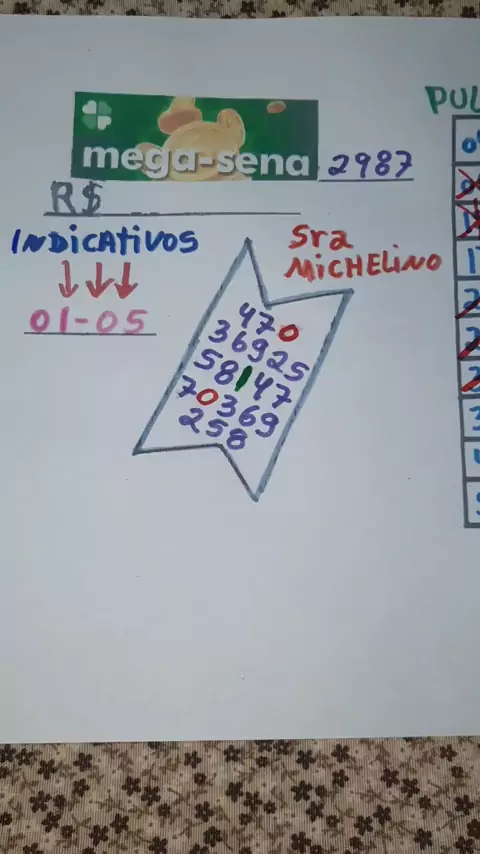 mega-sena 2987
R$
INDICATIVOS
01-05
Sra
MICHELINO
470
36925
58147
70369
258
PUL